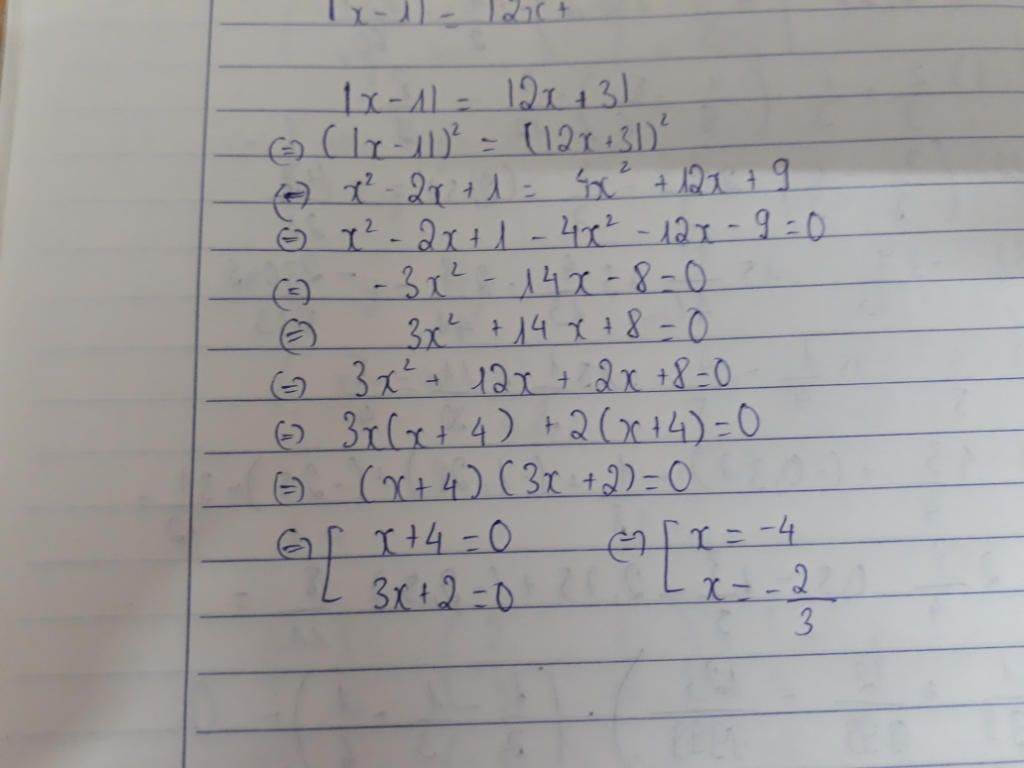 |x-1| = |2x+
|x-1| = |2x+3|
⇔ (|x-1|)² = (|2x+3|)²
⇔ x² - 2x + 1 = 4x² + 12x + 9
⇔ x² - 2x + 1 - 4x² - 12x - 9 = 0
⇔ -3x² - 14x - 8 = 0
⇔ 3x² + 14x + 8 = 0
⇔ 3x² + 12x + 2x + 8 = 0
⇔ 3x(x+4) + 2(x+4) = 0
⇔ (x+4)(3x+2) = 0
⇔ [ x+4 = 0 ⇔ [ x = -4
3x+2 = 0 x = -2/3